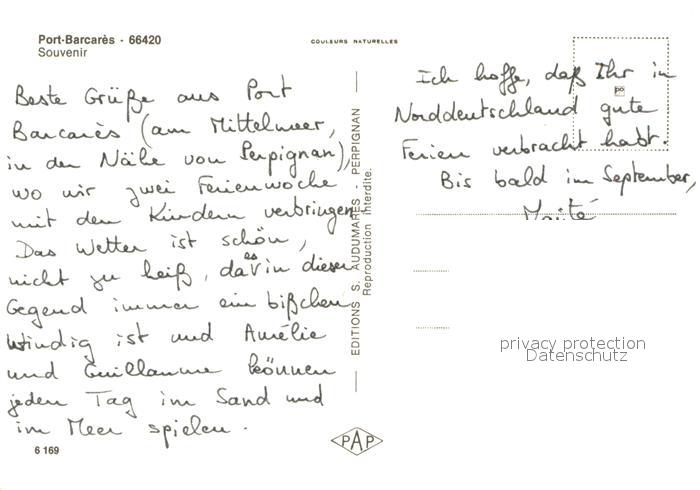 Port-Barcarès - 66420
Souvenir
COULEURS NATURELLES
Beste Grüße aus Port
Barcarès (am Mittelmeer,
in der Nähe von Perpignan),
wo wir zwei Ferienwoche
mit den Kindern verbringen.
Das Wetter ist schön,
nicht zu heiß, da es in dieser
Gegend immer ein bißchen
windig ist und Amélie
und Guillaume können
jeden Tag im Sand und
im Meer spielen.
6 169
EDITIONS S. AUDUMARES - PERPIGNAN
Reproduction interdite.
PAP
Ich hoffe, daß Ihr in
Norddeutschland gute
Ferien verbracht habt.
Bis bald im September,
Maïté
privacy protection
Datenschutz